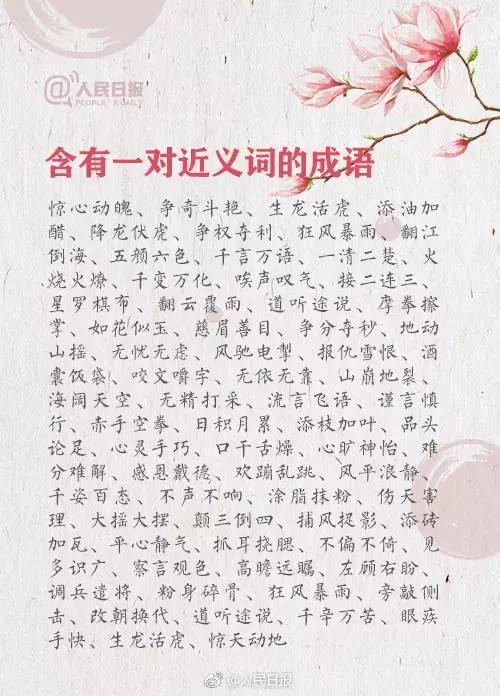 @人民日报
PEOPLE'S DAILY
含有一对近义词的成语
惊心动魄、争奇斗艳、生龙活虎、添油加
醋、降龙伏虎、争权夺利、狂风暴雨、翻江
倒海、五颜六色、千言万语、一清二楚、火
烧火燎、千变万化、唉声叹气、接二连三、
星罗棋布 翻云覆雨、道听途说、摩拳擦
掌、如花似玉、慈眉善目、争分夺秒、地动
山摇、无忧无虑、风驰电掣、报仇雪恨、酒
囊饭袋、咬文嚼字、无依无靠、山崩地裂、
海阔天空、无精打采、流言飞语、谨言慎
行、赤手空拳、日积月累、添枝加叶、品头
论足、心灵手巧、口干舌燥、心旷神怡、难
分难解、感恩戴德、欢蹦乱跳、风平浪静、
千姿百态、不声不响、涂脂抹粉、伤天害
理、大摇大摆、颠三倒四、捕风捉影、添砖
加瓦、平心静气、抓耳挠腮、不偏不倚、见
多识广、察言观色、高瞻远瞩、左顾右盼、
调兵遣将、粉身碎骨、狂风暴雨、旁敲侧
击、改朝换代、道听途说、千辛万苦、眼疾
手快、生龙活虎、惊天动地
@人民日报